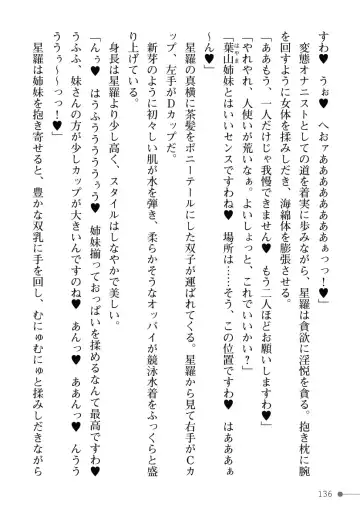 すわ♥　うぉ♥　へおァああああああああぁっっ！♥」
　変態オナニストとしての道を着実に歩みながら、星羅は貪欲に淫悦を貪る。抱き枕に腕
を回すように女体を揉みしだき、海綿体を膨張させる。
「ああもう、一人だけじゃ我慢できません♥　もう二人ほどお願いしますわ♥」
「やれやれ、人使いが荒いなぁ。よいしょっと、これでいいかい？」
「葉山姉妹とはいいセンスですわね♥　場所は……そう、この位置です♥　はあああぁ
～ん♥」
　星羅の真横に茶髪をポニーテールにした双子が運ばれてくる。星羅から見て右手がＣカ
ップ、左手がＤカップだ。
　新芽のように初々しい肌が水を弾き、柔らかそうなオッパイが競泳水着をふっくらと盛
り上げている。
　身長は星羅より少し高く、スタイルはしなやかで美しい。
「んぅ♥　はうふううううぅう♥　姉妹揃っておっぱいを揉めるなんて最高ですわ♥
うふふ、妹さんの方が少しカップが大きいんですのね♥　あんっ♥　ああんっ♥　んうう
ううぅ～～っっ！♥」
　星羅は姉妹を抱き寄せると、豊かな双乳に手を回し、むにゅむにゅと揉みしだきながら
136